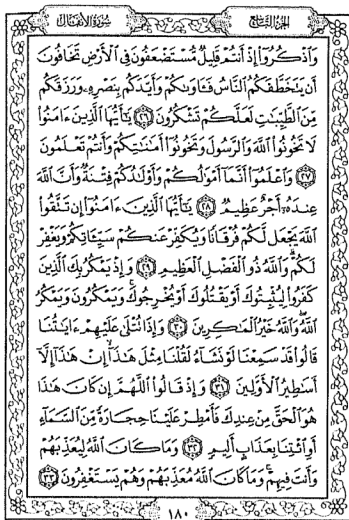 سورة الأنفال الجزء التاسع
وَاذْكُرُوا إِذْ أَنتُمْ قَلِيلٌ مُّسْتَضْعَفُونَ فِي الْأَرْضِ تَخَافُونَ
أَن يَتَخَطَّفَكُمُ النَّاسُ فَآوَىٰكُمْ وَأَيَّدَكُم بِنَصْرِهِ وَرَزَقَكُم
مِّنَ الطَّيِّبَٰتِ لَعَلَّكُمْ تَشْكُرُونَ ٢٦ يَٰأَيُّهَا الَّذِينَ ءَامَنُوا
لَا تَخُونُوا اللَّهَ وَالرَّسُولَ وَتَخُونُوا أَمَٰنَٰتِكُمْ وَأَنتُمْ تَعْلَمُونَ
٢٧ وَاعْلَمُوا أَنَّمَا أَمْوَٰلُكُمْ وَأَوْلَٰدُكُمْ فِتْنَةٌ وَأَنَّ اللَّهَ
عِندَهُ أَجْرٌ عَظِيمٌ ٢٨ يَٰأَيُّهَا الَّذِينَ ءَامَنُوا إِن تَتَّقُوا
اللَّهَ يَجْعَل لَّكُمْ فُرْقَانًا وَيُكَفِّرْ عَنكُمْ سَيِّـَٔاتِكُمْ وَيَغْفِرْ
لَكُمْ وَاللَّهُ ذُو الْفَضْلِ الْعَظِيمِ ٢٩ وَإِذْ يَمْكُرُ بِكَ الَّذِينَ
كَفَرُوا لِيُثْبِتُوكَ أَوْ يَقْتُلُوكَ أَوْ يُخْرِجُوكَ وَيَمْكُرُونَ وَيَمْكُرُ
اللَّهُ وَاللَّهُ خَيْرُ الْمَٰكِرِينَ ٣٠ وَإِذَا تُتْلَىٰ عَلَيْهِمْ ءَايَٰتُنَا
قَالُوا قَدْ سَمِعْنَا لَوْ نَشَاءُ لَقُلْنَا مِثْلَ هَٰذَا إِنْ هَٰذَا إِلَّا
أَسَٰطِيرُ الْأَوَّلِينَ ٣١ وَإِذْ قَالُوا اللَّهُمَّ إِن كَانَ هَٰذَا
هُوَ الْحَقَّ مِنْ عِندِكَ فَأَمْطِرْ عَلَيْنَا حِجَارَةً مِّنَ السَّمَاءِ
أَوِ ائْتِنَا بِعَذَابٍ أَلِيمٍ ٣٢ وَمَا كَانَ اللَّهُ لِيُعَذِّبَهُمْ
وَأَنتَ فِيهِمْ وَمَا كَانَ اللَّهُ مُعَذِّبَهُمْ وَهُمْ يَسْتَغْفِرُونَ ٣٣
١٨٠